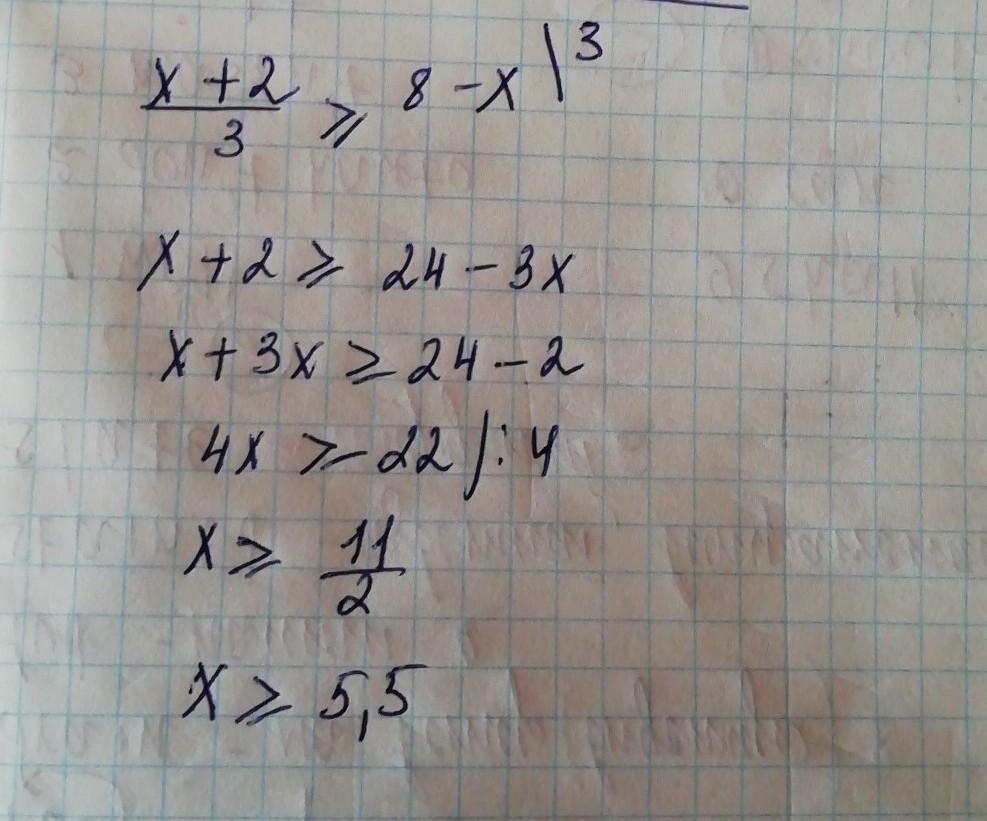 (x + 2)/3 ⩾ 8 - x \ 3
x + 2 ⩾ 24 - 3x
x + 3x ⩾ 24 - 2
4x ⩾ 22 / : 4
x ⩾ 11/2
x ⩾ 5,5